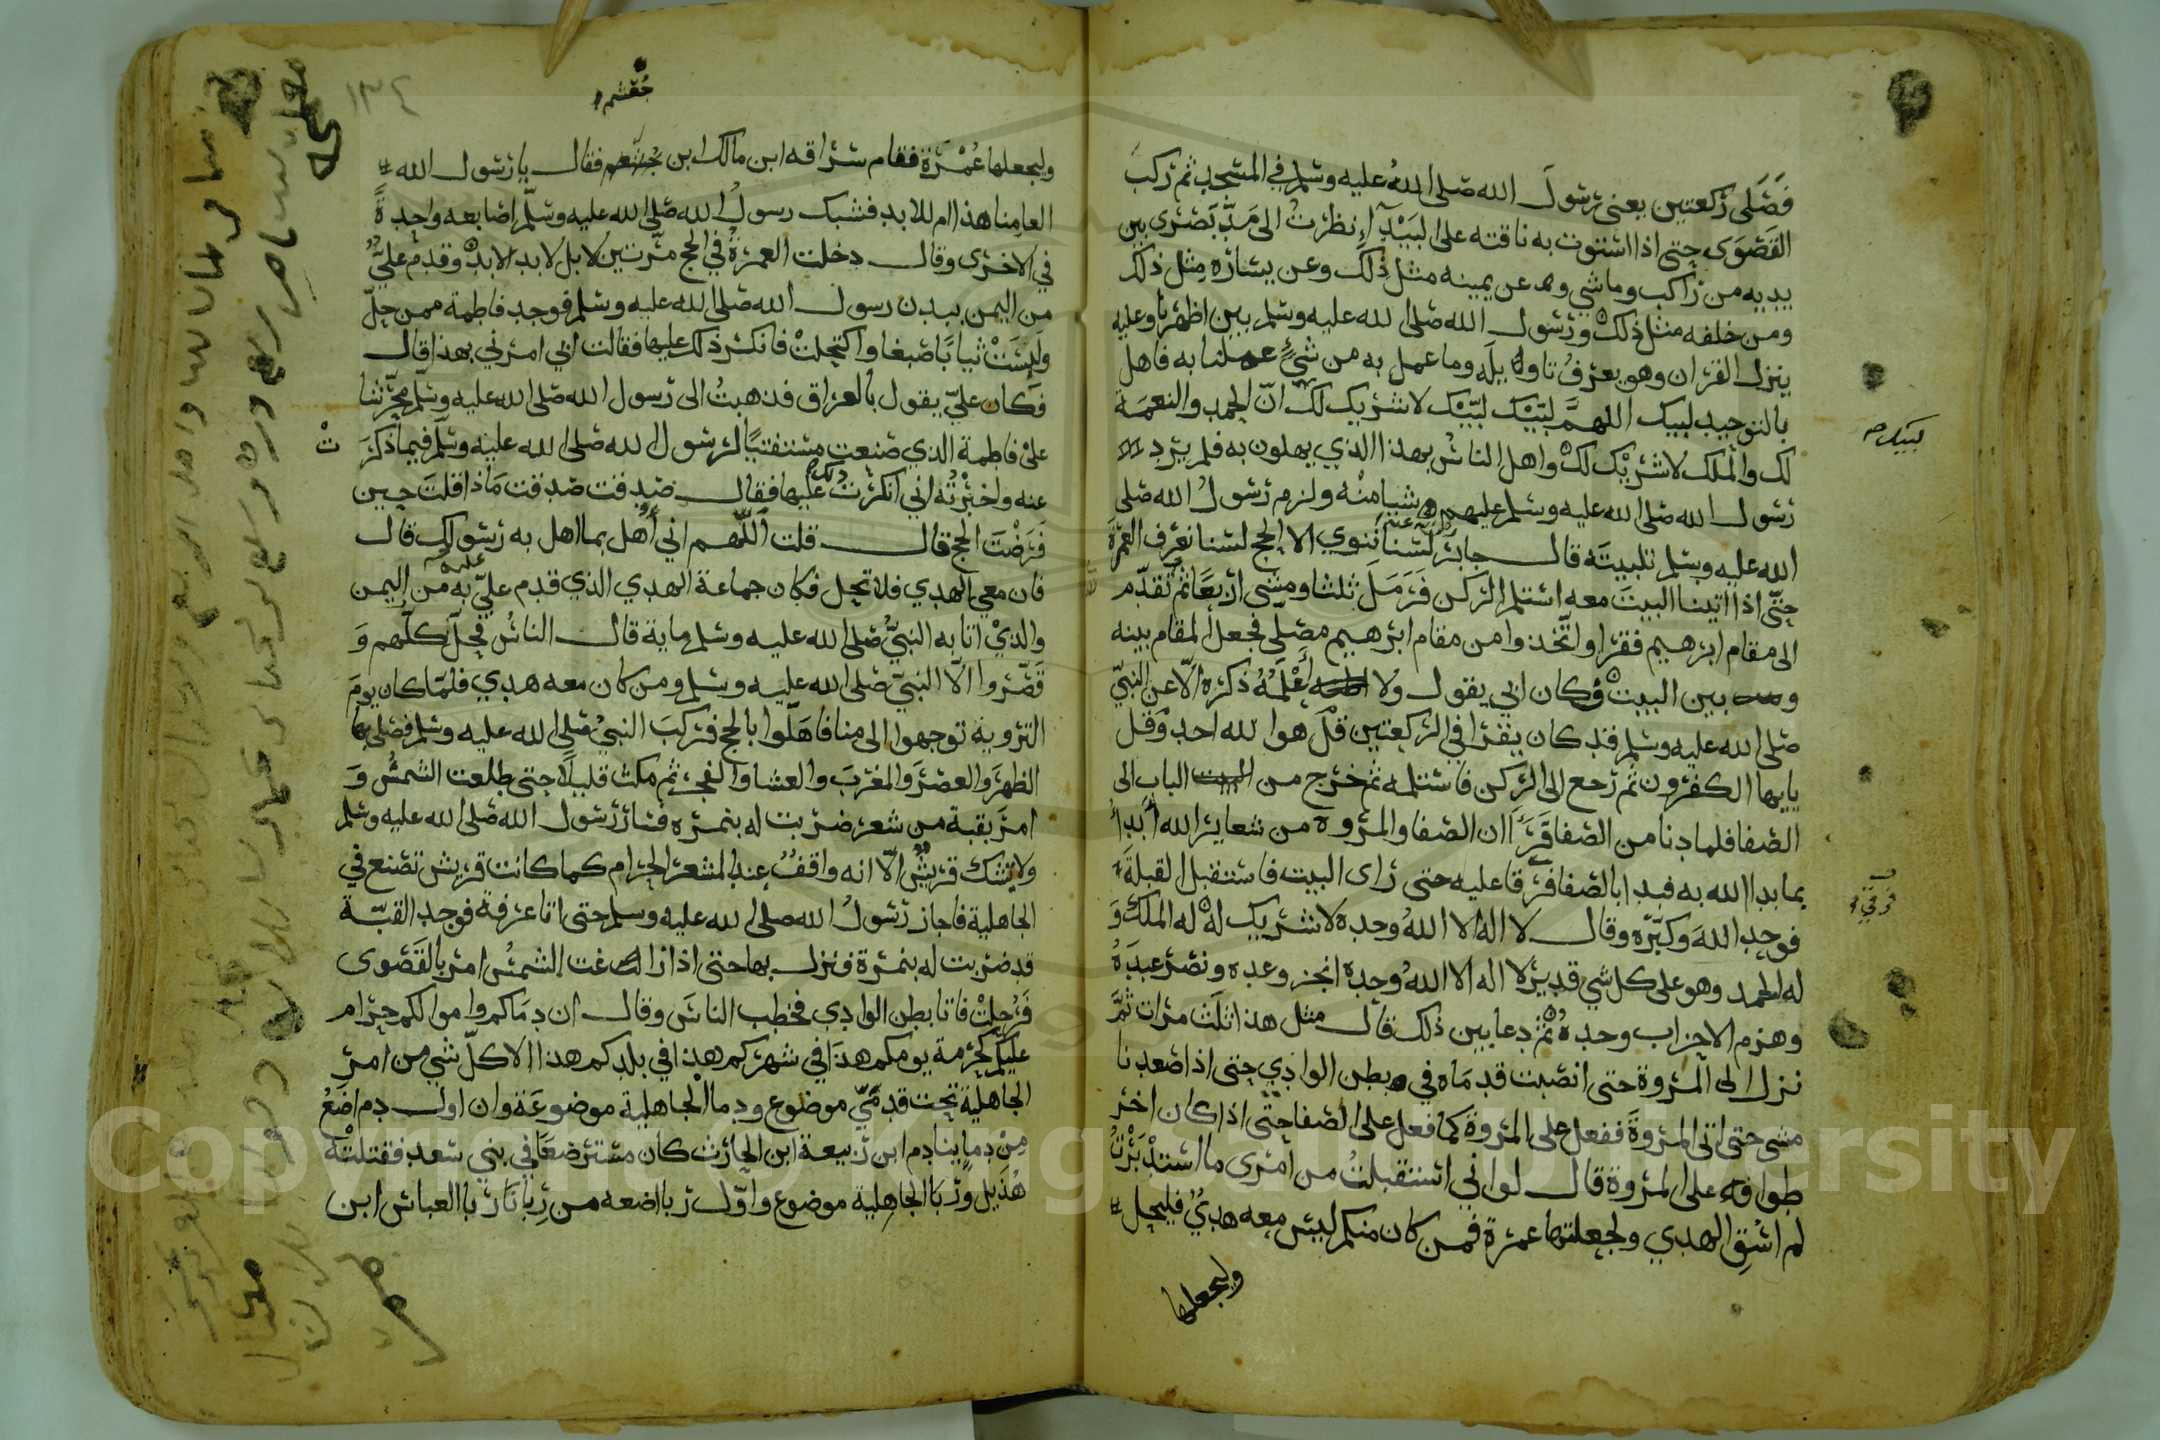 فصلى ركعتين يعنى رسول الله صلى الله عليه وسلم في المسجد ثم ركب
القصوى حتى اذا استوت به ناقته على البيدآء نظرت الى مد بصري بين
يديه من راكب وماشي وعن يمينه مثل ذلك وعن يساره مثل ذلك
ومن خلفه مثل ذلك ورسول الله صلى الله عليه وسلم بين اظهرنا وعليه
ينزل القران وهو يعرف تاويله وما عمل به من شيء عملنا به فاهل
بالتوحيد لبيك اللهم لبيك لبيك لا شريك لك ان الحمد والنعمة
لبيك
لك والملك لا شريك لك واهل الناس بهذا الذي يهلون به فلم يرد
رسول الله صلى الله عليه وسلم عليهم شيا منه ولزم رسول الله صلى
الله عليه وسلم تلبيته قال جابر لسنا ننوي الا الحج لسنا نعرف العمرة
حتى اذا اتينا البيت معه استلم الركن فرمل ثلثا ومشى اربعا ثم تقدم
الى مقام ابرهيم فقرا واتخذوا من مقام ابرهيم مصلى فجعل المقام بينه
وبين البيت وكان ابي يقول ولا أعلمه ذكره الا عن النبي
صلى الله عليه وسلم قد كان يقرا في الركعتين قل هوا لله احد وقل
يايها الكفرون ثم رجع الى الركن فاستلمه ثم خرج من الباب الى
الصفا فلما دنا من الصفا قرأ ان الصفا والمروة من شعاير الله أبدأ
بما بدا الله به فبدا بالصفا فرقا عليه حتى راى البيت فاستقبل القبلة
فرقي
فوحد الله وكبره وقال لا اله الا الله وحده لا شريك له له الملك و
له الحمد وهو على كل شي قدير لا اله الا الله وحده انجز وعده ونصر عبده
وهزم الاحزاب وحده ثم دعا بين ذلك قال مثل هذا ثلث مرات ثم
نزل الى المروة حتى انصبت قدماه في بطن الوادي حتى اذا صعدنا
مشى حتى اتى المروة ففعل على المروة كما فعل على الصفا حتى اذا كان اخر
طوافه على المروة قال لو اني استقبلت من امري ما استدبرت
لم اسق الهدي ولجعلتها عمرة فمن كان منكم ليس معه هدي فليحل
وليجعلها
١٣٤
جعشم
وليجعلها عمرة فقام سراقه ابن مالك ابن فقال يا رسول الله
العامنا هذا ام للابد فشبك رسول الله صلى الله عليه وسلم اصابعه واحدة
في الاخرى وقال دخلت العمرة في الحج مرتين لا بل لابد الابد وقدم علي
من اليمن ببدن رسول الله صلى الله عليه وسلم فوجد فاطمة ممن حل
ولبست ثيابا صبغا واكتحلت فانكر ذلك عليها فقالت ابي امرني بهذا قال
فكان علي يقول بالعراق فذهبت الى رسول الله صلى الله عليه وسلم محرشا
على فاطمة الذي صنعت مستفتيا لرسول الله صلى الله عليه وسلم فيما ذكر
ت
عنه واخبرته اني انكرت ذلك عليها فقال صدقت صدقت ماذا قلت حين
فرضت الحج قال قلت اللهم اني أهل بما اهل به رسولك قال
فان معي الهدي فلا تحل فكان جماعة الهدي الذي قدم علي به من اليمن
والذي اتا به النبي صلى الله عليه وسلم ماية قال الناس فحل كلهم و
قصروا الا النبي صلى الله عليه وسلم ومن كان معه هدي فلما كان يوم
التروية توجهوا الى منا فاهلوا بالحج فركب النبي صلى الله عليه وسلم فصلى بها
الظهر والعصر والمغرب والعشا والفجر ثم مكث قليلا حتى طلعت الشمس و
امر بقبة من شعر ضربت له بنمره فسار رسول الله صلى الله عليه وسلم
ولا تشك قريش الا انه واقف عند المشعر الحرام كما كانت قريش تصنع في
الجاهلية فاجاز رسول الله صلى الله عليه وسلم حتى اتا عرفة فوجد القبة
قد ضربت له بنمرة فنزل بها حتى اذا زاغت الشمس امر بالقصوى
فرحلت فاتا بطن الوادي فخطب الناس وقال ان دماكم واموالكم حرام
عليكم كحرمة يومكم هذا في شهركم هذا في بلدكم هذا الا كل شي من امر
الجاهلية تحت قدمي موضوع ودما الجاهلية موضوعة وان اول دم اضع
من دماينا دم ابن ربيعة ابن الحارث كان مسترضعا في بني سعد فقتلته
هذيل وربا الجاهلية موضوع واول ربا اضعه من ربانا ربا العباس ابن
Copyright © King Saud University